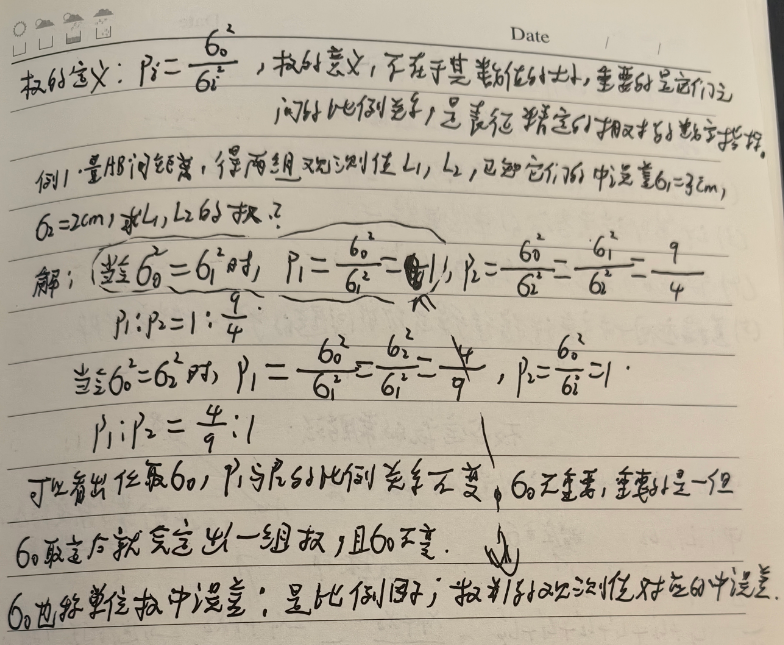 Date / /
权的定义：Pi = σ0² / σi²，权的意义，不在于其数值的大小，重要的是它们之
间的比例关系，是表征精度的相对的数字指标。
例1. 量AB间距离，得两组观测值L1，L2，已知它们的中误差σ1=3cm，
σ2=2cm，求L1，L2的权？
解：当σ0²=σ1²时，P1 = σ0²/σ1² = 1，P2 = σ0²/σ2² = σ1²/σ2² = 9/4
P1:P2 = 1:9/4
当σ0²=σ2²时，P1 = σ0²/σ1² = σ2²/σ1² = 4/9，P2 = σ0²/σ2² = 1
P1:P2 = 4/9:1
可以看出任取σ0，P1与P2的比例关系不变。σ0不重要，重要的是一但
σ0取定后就会定出一组权，且σ0不变.
σ0也称单位权中误差；是比例因子；权为1的观测值对应的中误差.